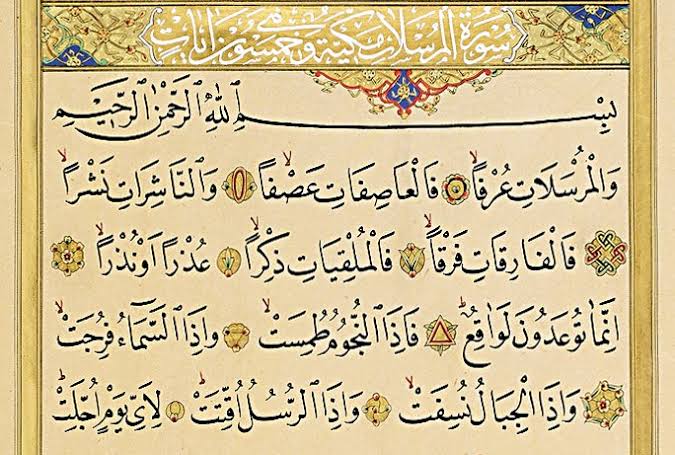 سورة المرسلات مكية وهي خمسون آيات
بِسْمِ اللّٰهِ الرَّحْمٰنِ الرَّحٖيمِ
وَالْمُرْسَلَاتِ عُرْفًاۙ فَالْعَاصِفَاتِ عَصْفًاۙ وَالنَّاشِرَاتِ نَشْرًاۙ
فَالْفَارِقَاتِ فَرْقًاۙ فَالْمُلْقِيَاتِ ذِكْرًاۙ عُذْرًا اَوْ نُذْرًاۙ
اِنَّمَا تُوعَدُونَ لَوَاقِعٌۜ فَاِذَا النُّجُومُ طُمِسَتْۙ وَاِذَا السَّمَٓاءُ فُرِجَتْۙ
وَاِذَا الْجِبَالُ نُسِفَتْۙ وَاِذَا الرُّسُلُ اُقِّتَتْۜ لِاَيِّ يَوْمٍ اُجِّلَتْۜ